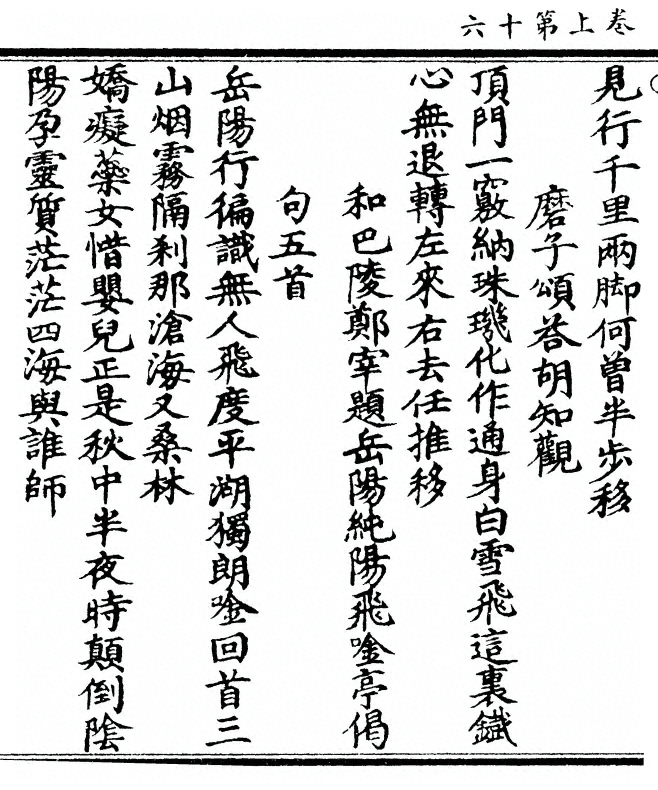 卷上第十六
見行千里兩脚何曾半步移
磨子頌答胡知觀
頂門一竅納珠璣化作通身白雪飛這裏鐵
心無退轉左來右去任推移
和巴陵鄭宰題岳陽純陽飛唫亭偈
句五首
岳陽行徧識無人飛度平湖獨朗唫回首三
山烟霧隔刹那滄海又桑林
嬌癡藥女惜嬰兒正是秋中半夜時顛倒陰
陽孕靈質茫茫四海與誰師